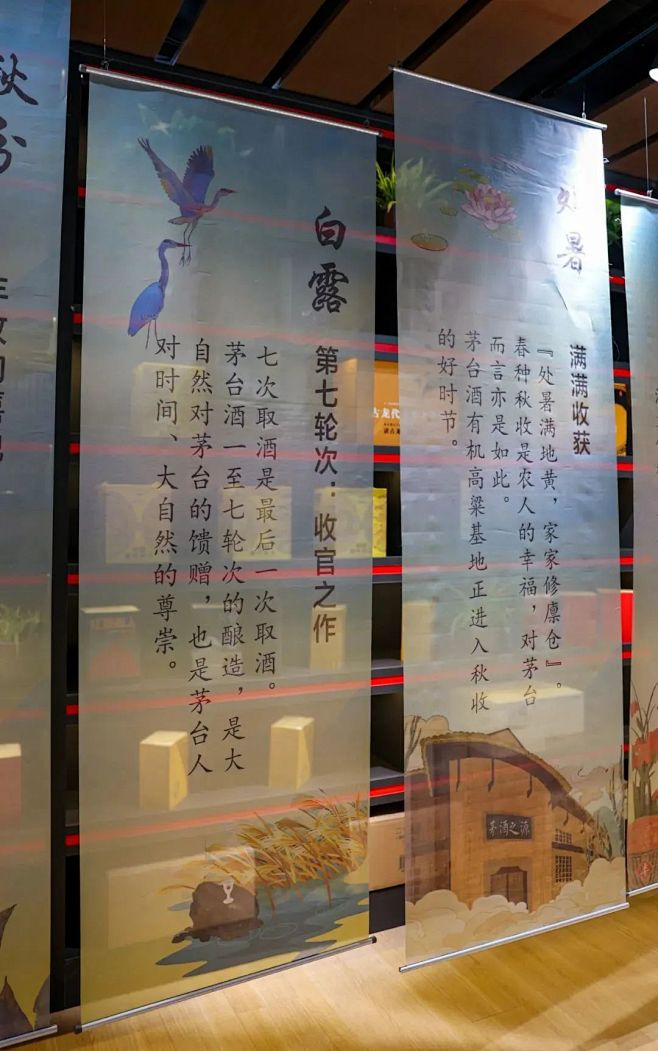 处暑
满满收获
『处暑满地黄，家家修廪仓』。
春种秋收是农人的幸福，对茅台
而言亦是如此。
茅台酒有机高粱基地正进入秋收
的好时节。
茅酒之源
白露
第七轮次：收官之作
七次取酒是最后一次取酒。
茅台酒一至七轮次的酿造，是大
自然对茅台的馈赠，也是茅台人
对时间、大自然的尊崇。
秋分